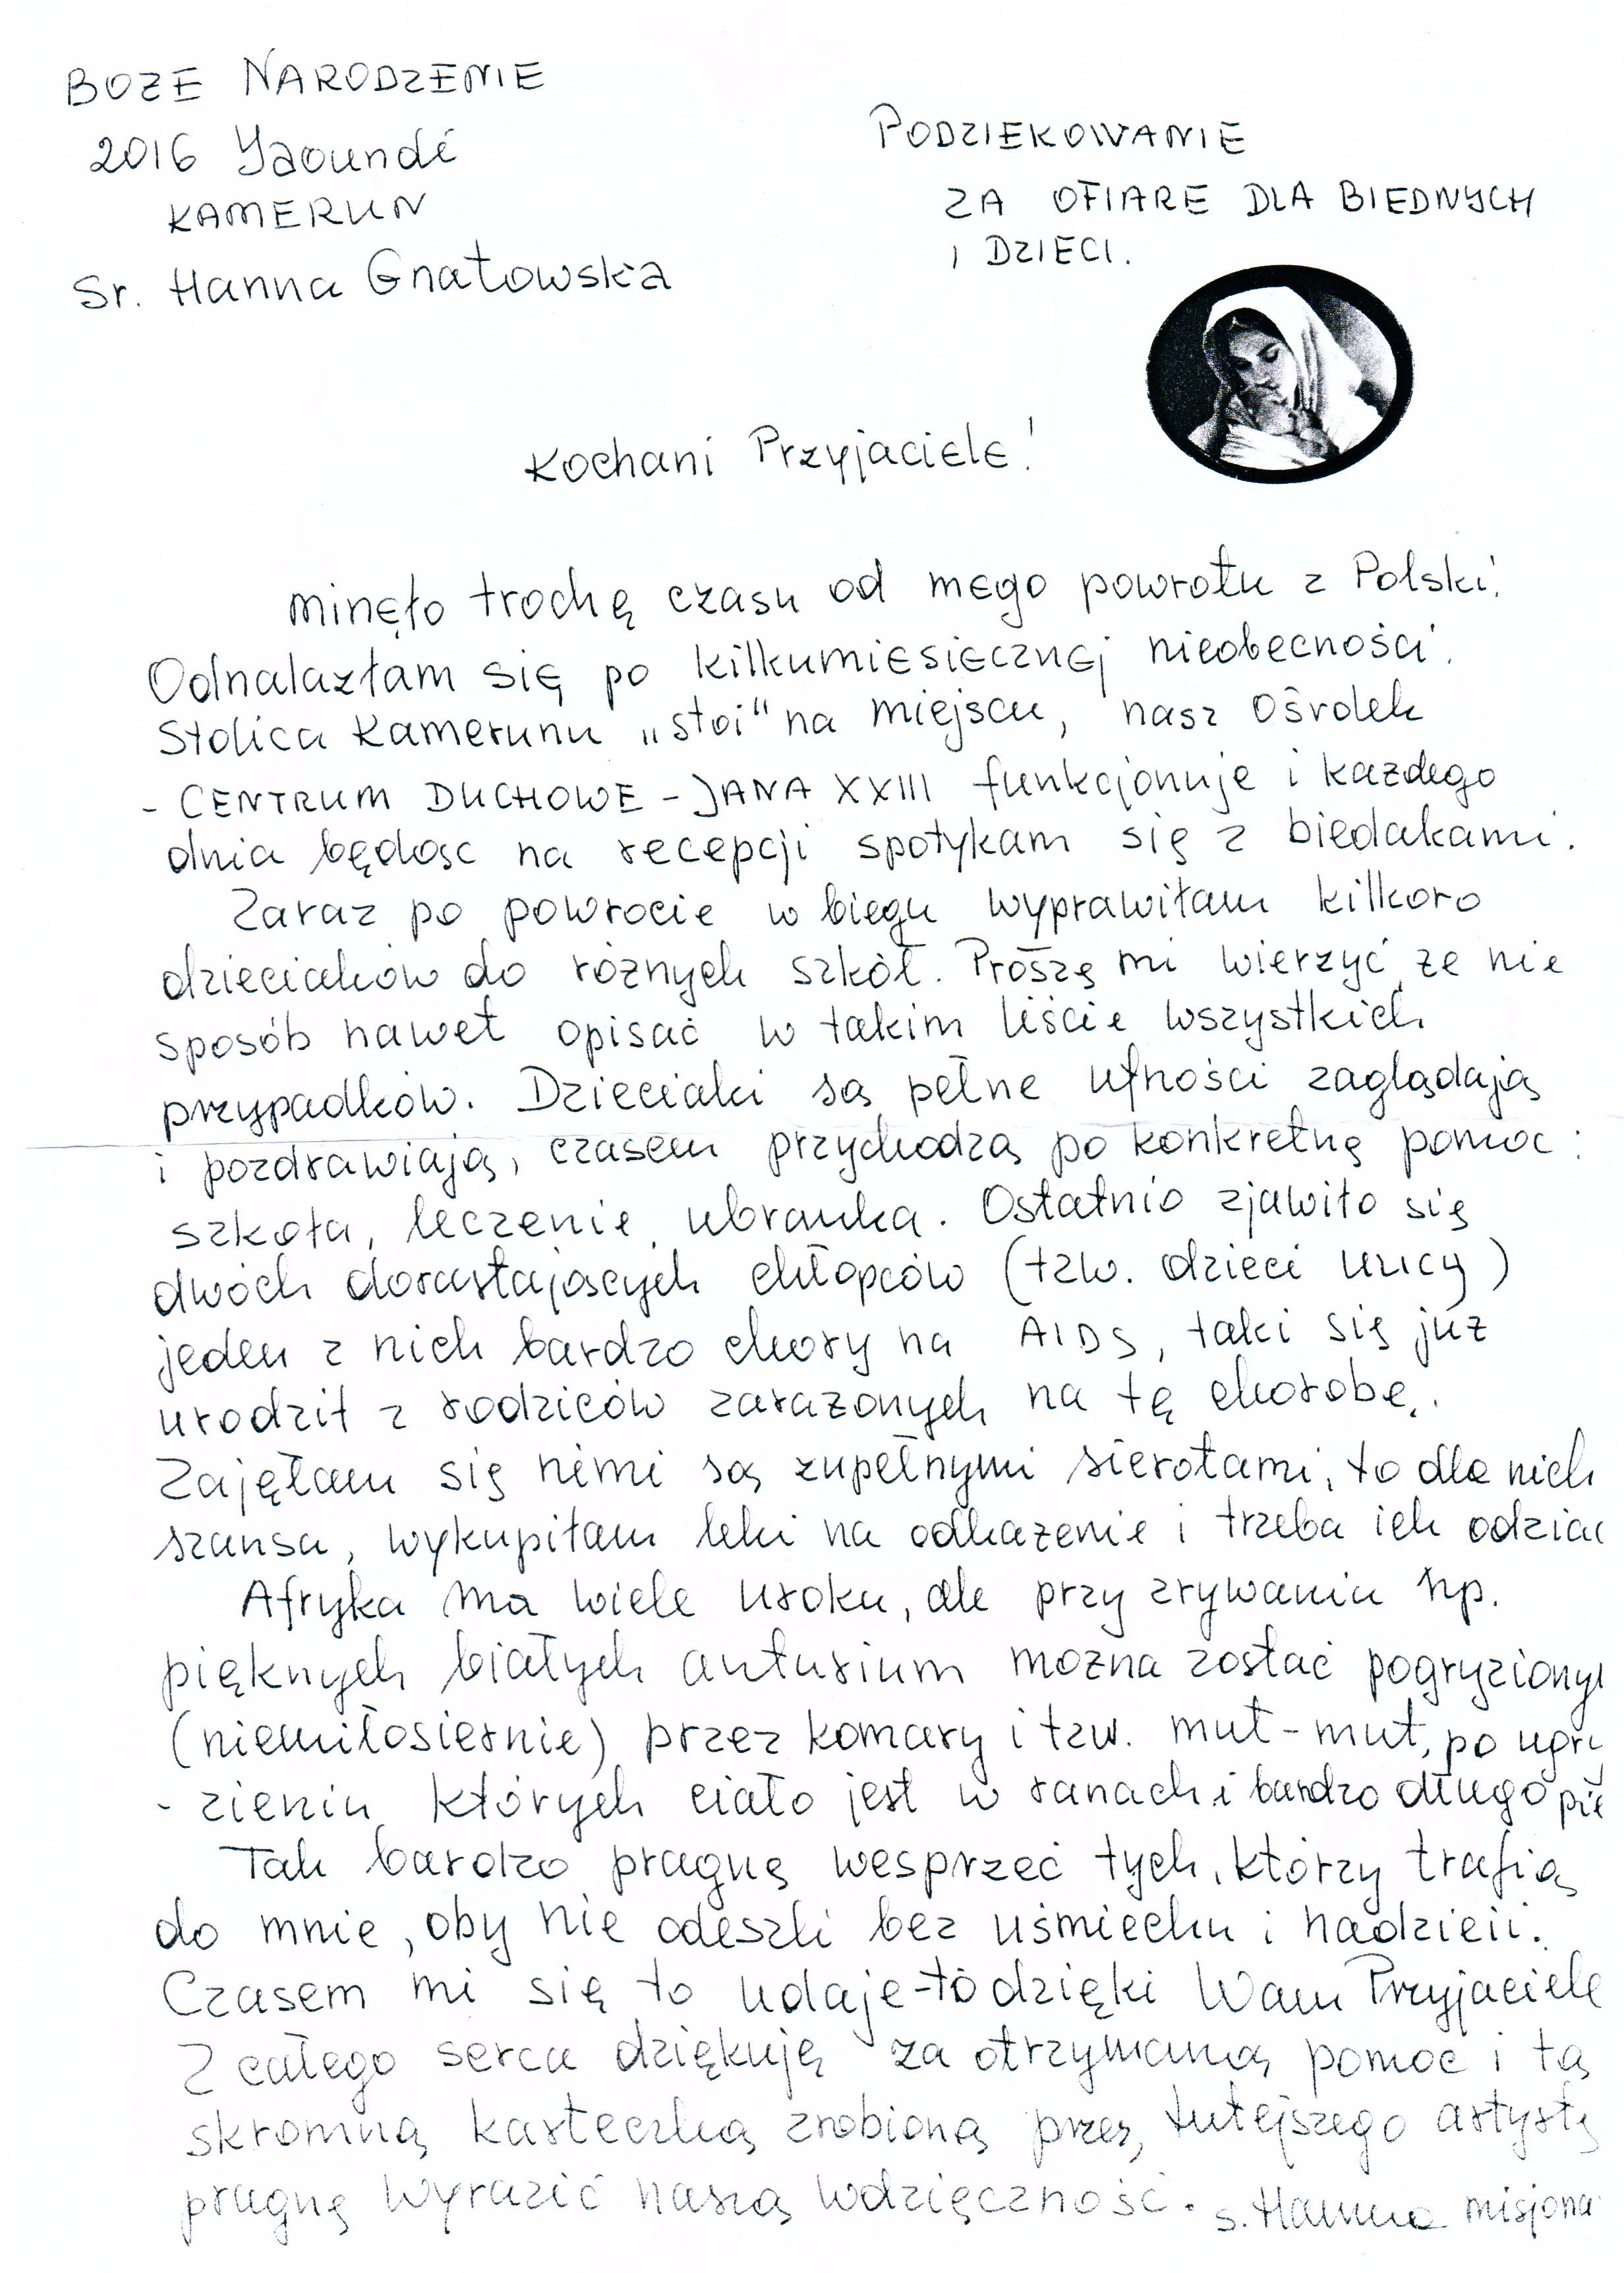 BOZE NARODZENIE
2016 Yaoundé
KAMERUN
Sr. Hanna Gnatowska
PODZIEKOWANIE
ZA OFIARE DLA BIEDNYCH
I DZIECI.
Kochani Przyjaciele!
minęło trochę czasu od mego powrotu z Polski.
Odnalazłam się po kilkumiesięcznej nieobecności.
Stolica Kamerunu „stoi“ na miejscu, nasz Ośrodek
- CENTRUM DUCHOWE - JANA XXIII funkcjonuje i każdego
dnia będąc na recepcji spotykam się z biedakami.
Zaraz po powrocie w biegu wyprawiłam kilkoro
dzieciaków do różnych szkół. Proszę mi wierzyć, że nie
sposób nawet opisać w takim liście wszystkich
przypadków. Dzieciaki są pełne ufności zaglądają
i pozdrawiają, czasem przychodzą po konkretną pomoc:
szkoła, leczenie, ubranka. Ostatnio zjawiło się
dwóch dorastających chłopców (tzw. dzieci ulicy)
jeden z nich bardzo chory na AIDS, taki się już
urodził z rodziców zarażonych na tę chorobę.
Zajęłam się nimi są zupełnymi sierotami, to dla nich
szansa, wykupiłam leki na odkażenie i trzeba ich odziać
Afryka ma wiele uroku, ale przy zrywaniu np.
pięknych białych anturium można zostać pogryziony
(niemiłosiernie) przez komary i tzw. mut-mut, po ugry
- zieniu których ciało jest w ranach i bardzo długo pie
Tak bardzo pragnę wesprzeć tych, którzy trafią
do mnie, oby nie odeszli bez uśmiechu i nadzieii.
Czasem mi się to udaje - to dzięki Wam Przyjaciele
Z całego serca dziękuję za otrzymaną pomoc i tą
skromną karteczką zrobioną przez tutejszego artystę
pragnę wyrazić naszą wdzięczność. s. Hanna misjona